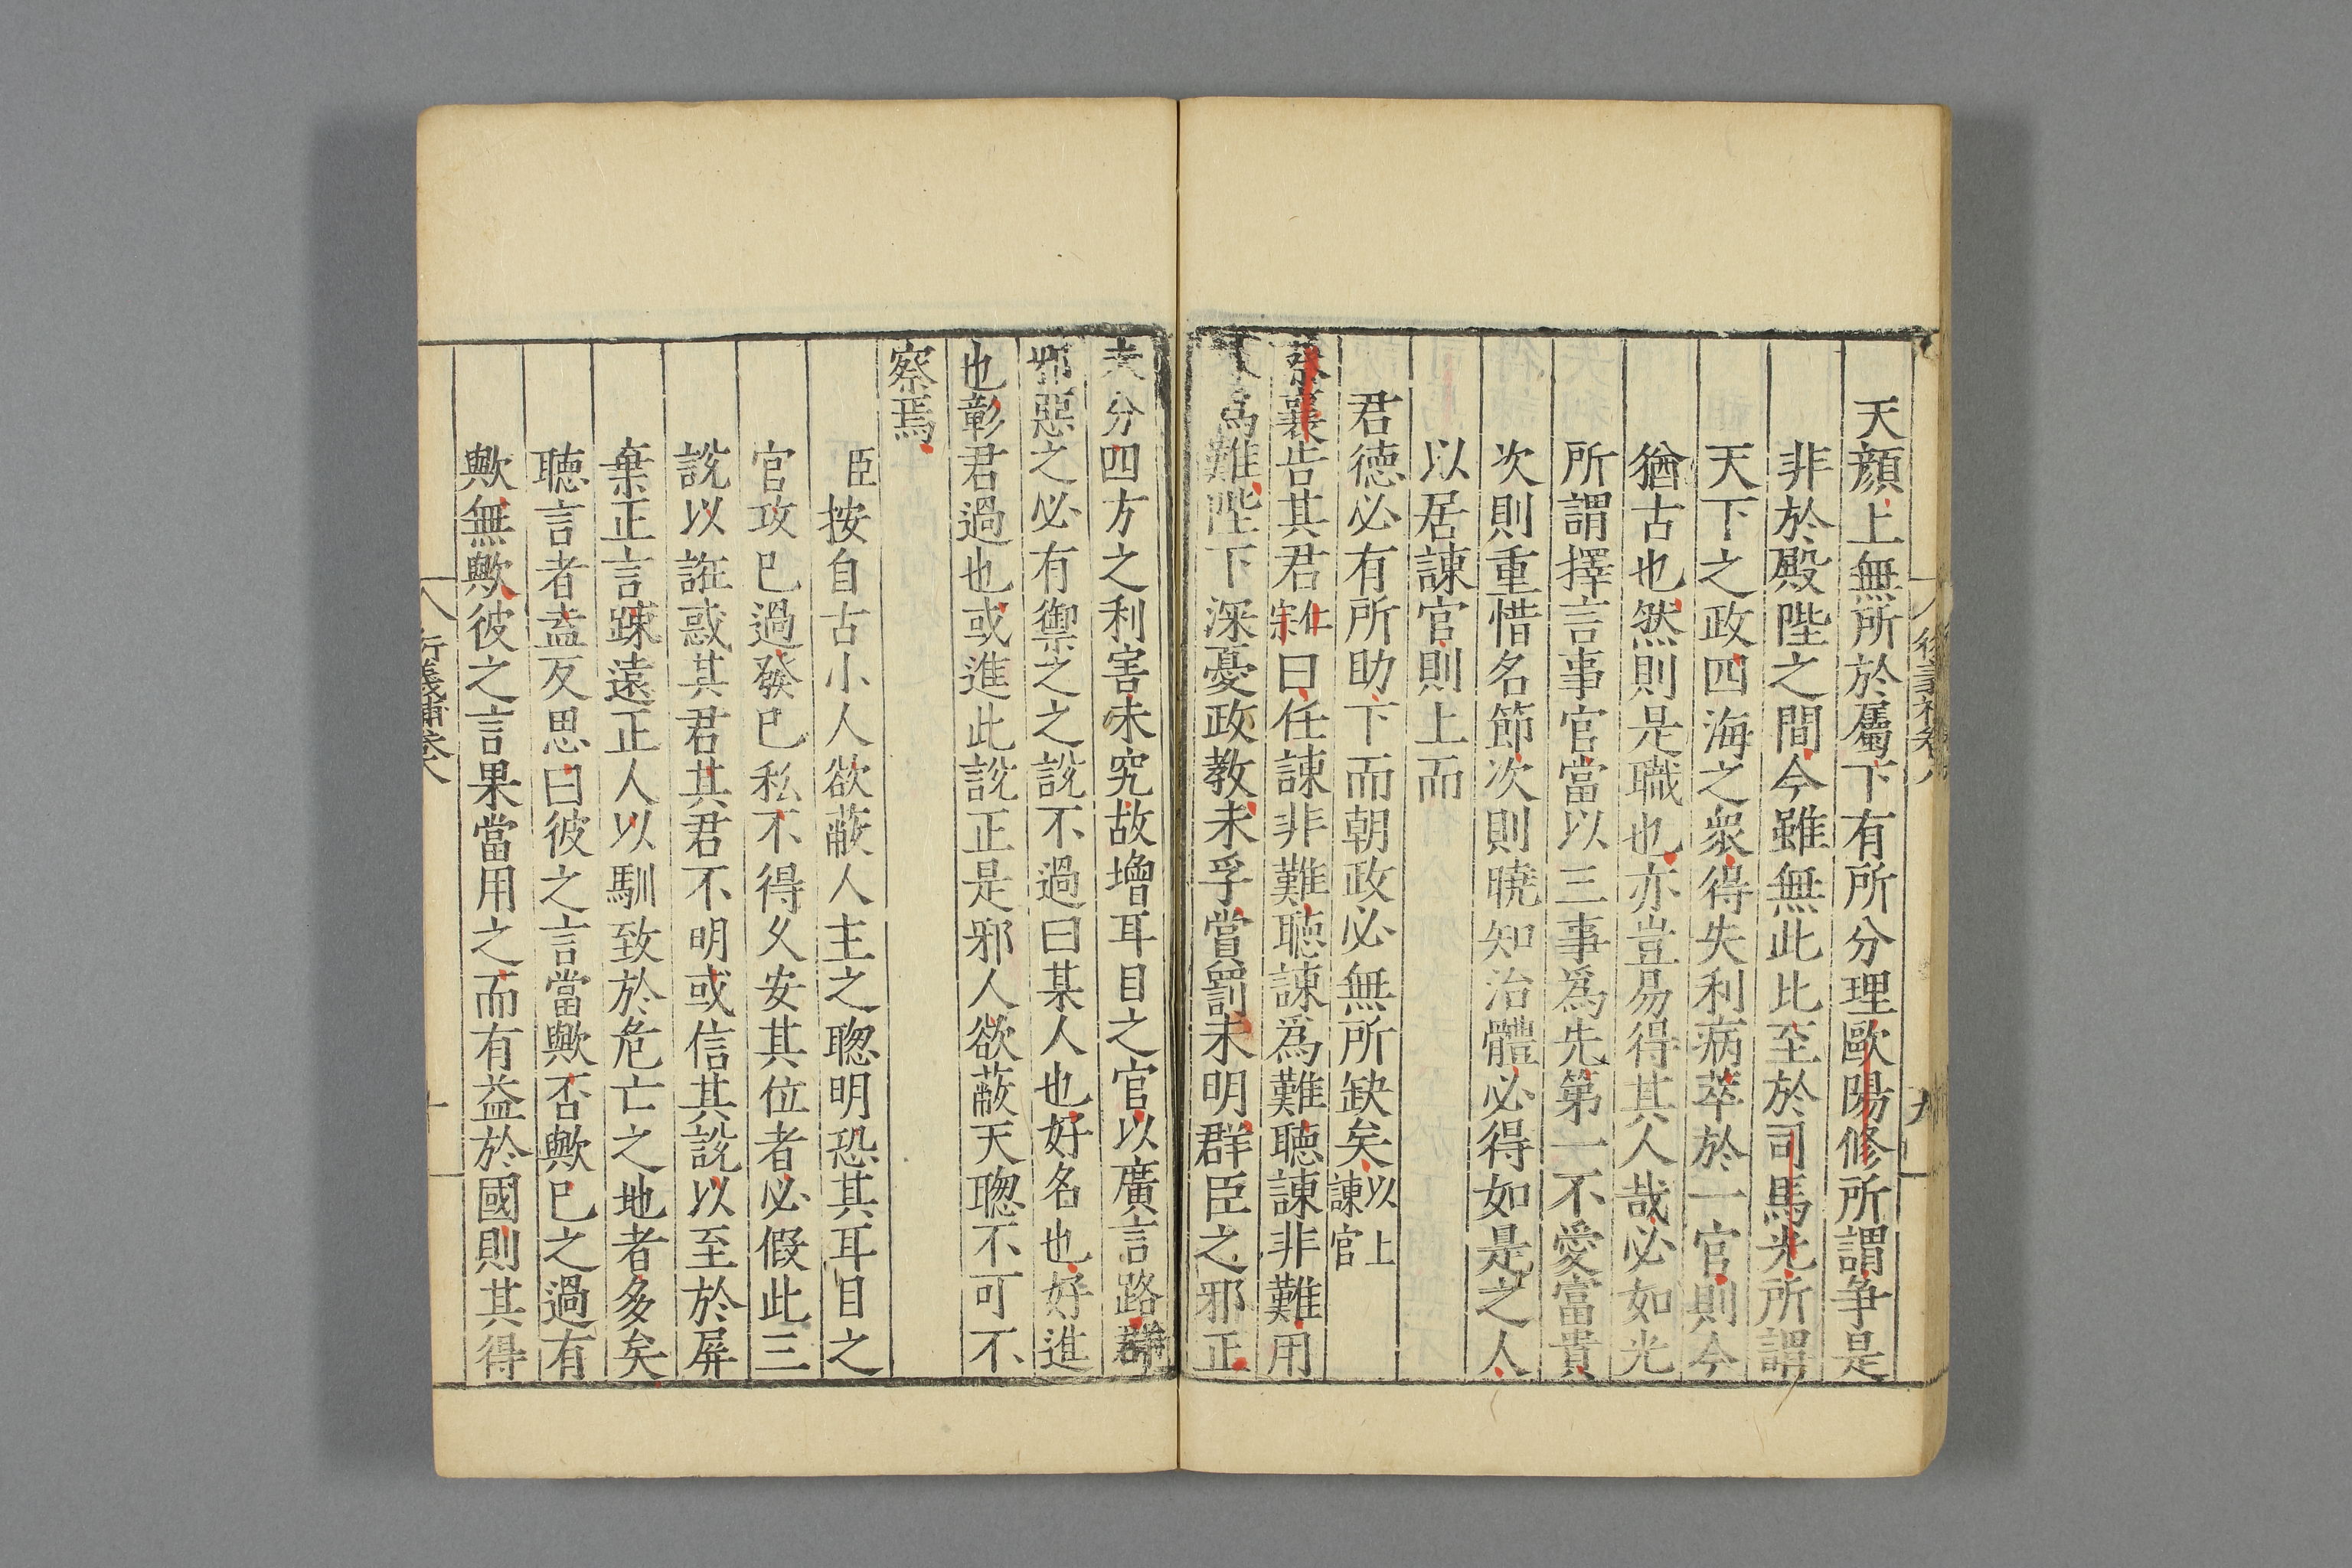 天顔上無所於屬下有所分理歐陽修所謂爭是
非於殿陛之間今雖無此比至於司馬光所謂
天下之政四海之衆得失利病萃於一官則今
猶古也然則是職也亦豈易得其人哉必如光
所謂擇言事官當以三事爲先第一不愛富貴
次則重惜名節次則曉知治體必得如是之人
以居諫官則上而
君德必有所助下而朝政必無所缺矣以上諫官
蔡襄告其君曰任諫非難聽諫爲難聽諫非難用
爲難陛下深憂政教未孚賞罰未明群臣之邪正
未分四方之利害未究故增耳目之官以廣言路群
邪惡之必有禦之之說不過曰某人也好名也好進
也彰君過也或進此說正是邪人欲蔽天聰不可不
察焉
臣按自古小人欲蔽人主之聰明恐其耳目之
官攻已過發已私不得久安其位者必假此三
說以誑惑其君其君不明或信其說以至於屏
棄正言踈遠正人以馴致於危亡之地者多矣
聽言者盍反思曰彼之言當歟否歟已之過有
歟無歟彼之言果當用之而有益於國則其得
衍義補卷八
十